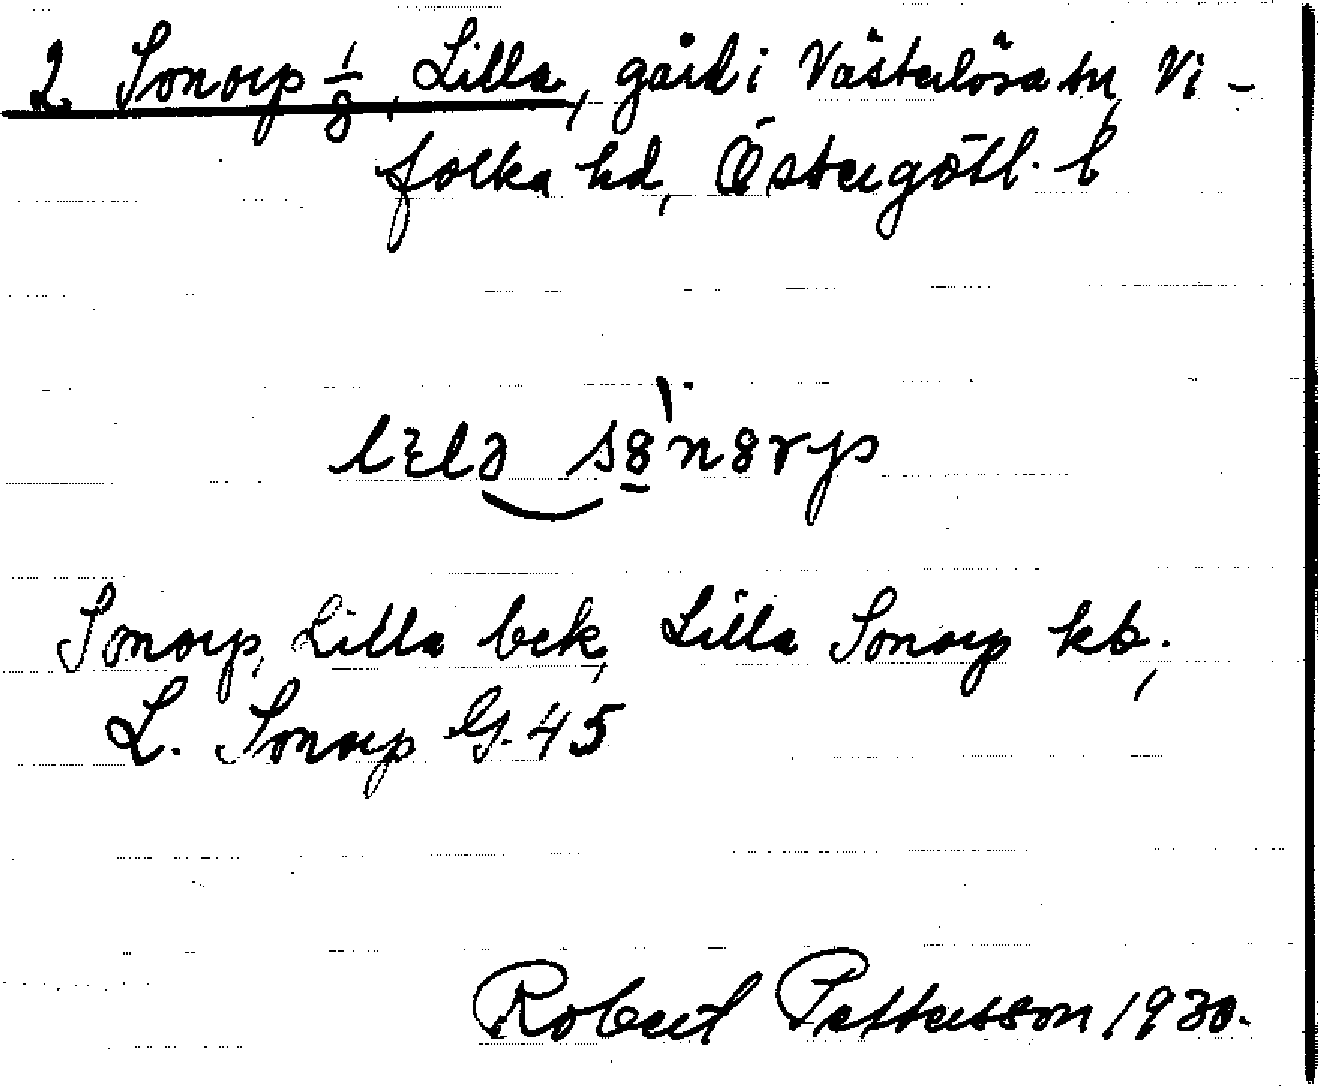 2 Sonorp 1/8, Lilla, gård i Västerlösa sn, Vi-
folka hd, Östergötl. l
Sonorp, Lilla bek, Lilla Sonorp kb.,
L. Sonorp G. 45
Robert Pettersson 1930.